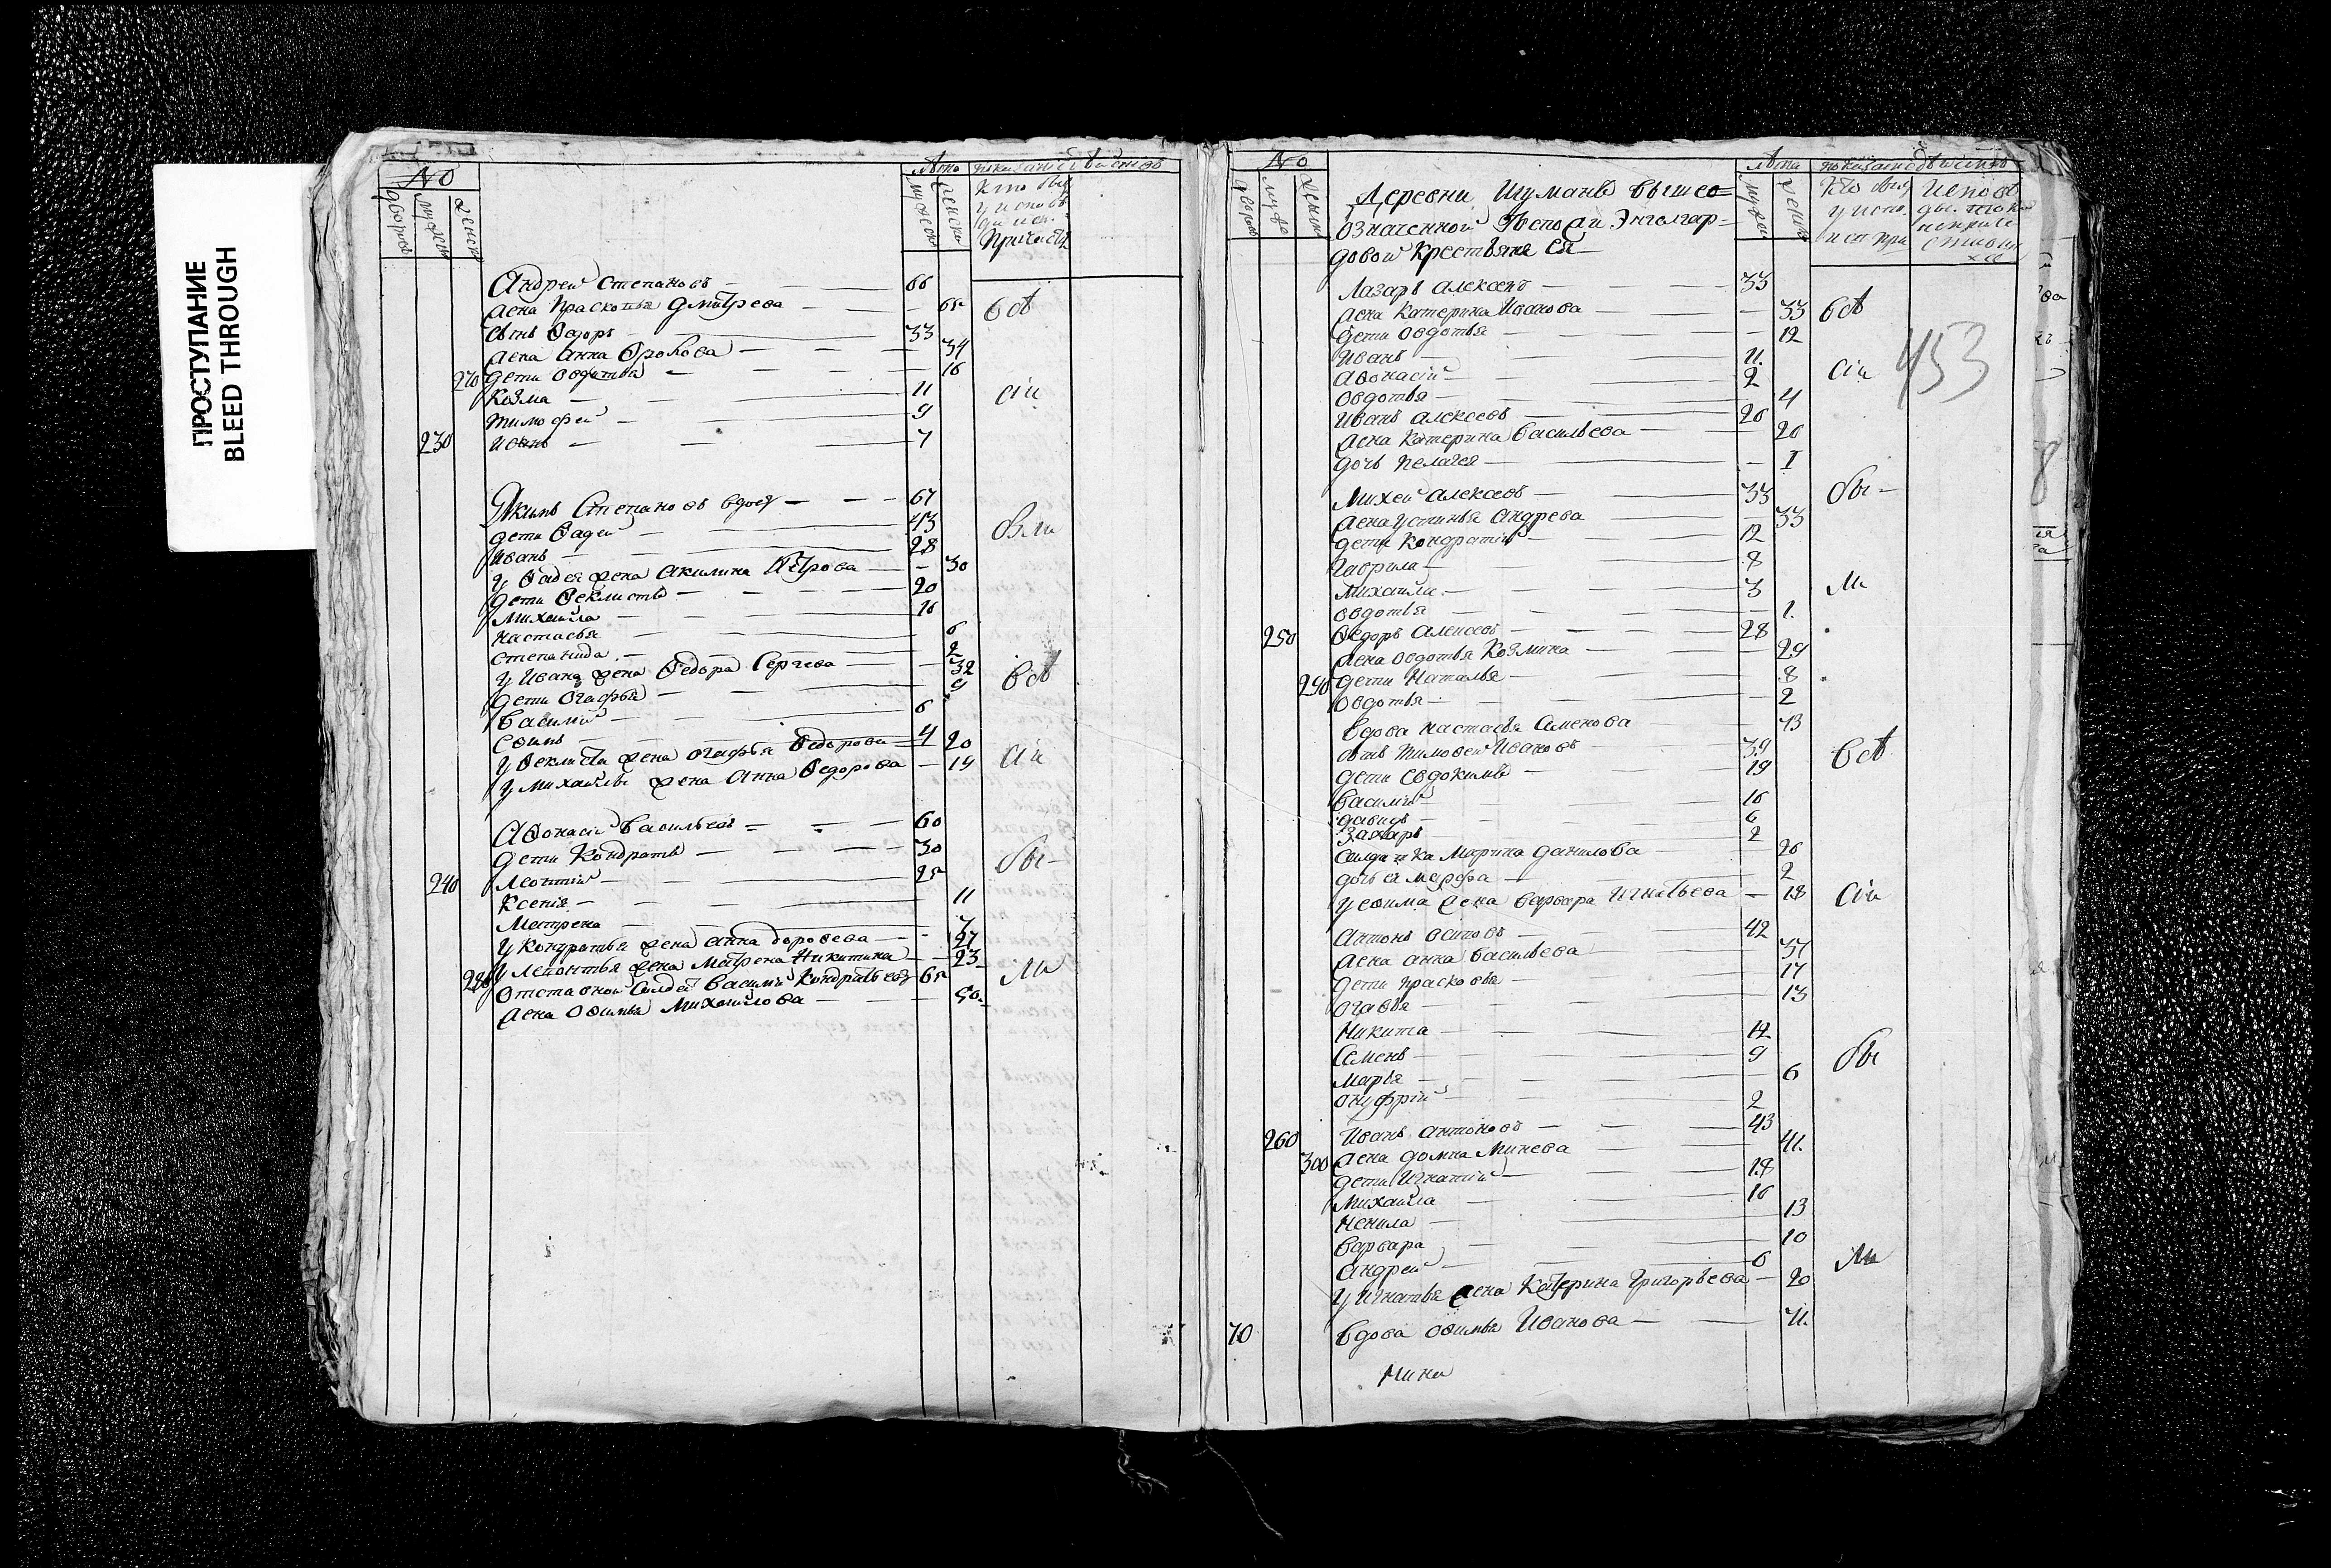 ПРОСТУПАНИЕ
BLEED THROUGH
No
лѣта
Дворов
мужеск
женск
мужеск
женски
Кто был
у испов
причаст
Андрей Степановъ 66
жена Прасковья Дмитрева 65
сынъ Ѳедоръ 33
жена Анна Фролова 34
270 дети Овдотья 16
Козма 11
Тимофей 9
230 Иванъ 7
всѣ
сіи
Якимъ Степановъ вдов 67
дети Фадей 43
Иванъ 28
у Фадея жена Акилина Петрова 30
дети Феклистъ 20
Михайла 16
Настасья 6
Степанида 2
у Ивана жена Ѳедора Сергеева 32
дети Огафья 9
Василий 6
Ѳеклиста жена Огафья Ѳедорова 20
у Михайлы жена Анна Ѳедорова 19
всѣ
сіи
Аѳонасій Васильевъ 60
дети Кондратъ 30
240 Леонтій 25
Ксенія 11
Матрена 7
у Кондратья жена Анна Дороѳеева 27
280 у Леонтья жена Матрена Никитина 23
Отставной Солдат Василий Кондратьевъ 65
жена Офимья Михайлова 50
бы-
ли
No
лѣта
Дворов
муже
женски
мужес
женск
Деревни Шуманъ выше о=
означенной Госпожи Энгалгар-
довой крестьяне
Лазарь Алексеевъ 33
жена Катерина Иванова 33
дети Овдотья 12
Иванъ 11
Аѳонасій 2
Овдотья 4
Иванъ Алексеевъ 20
жена Катерина Васильева 20
дочь Пелагея 1
всѣ
сіи
453
Михей Алексеевъ 33
жена Устинья Андрева 33
дети Кондратій 12
Гаврила 8
Михайла 3
Овдотья 1
250 Ѳедоръ Алексеевъ 28
жена Овдотья Козмина 29
290 дети Наталья 8
Овдотья 2
бы-
ли
вдова Настасья Семенова 73
сынъ Тимоѳей Ивановъ 39
дети Евдокимъ 19
Василий 16
Давидъ 6
Захаръ 2
солдатка Марина Данилова 26
дочь ея Марфа 2
у Ефима жена Варвара Игнатьева 18
всѣ
сіи
Антонъ Осиповъ 42
жена Анна Васильева 37
дети Прасковья 17
Огафья 13
Никита 12
Семенъ 9
Марья 6
Онуфрій 2
260 Иванъ Антоновъ 43
300 жена Домна Минеева 41
дети Игнатій 18
Михайла 16
Ненила 13
Варвара 10
Андрей 6
у Игнатья жена Катерина Григорьева 20
70 вдова Офимья Иванова 71
бы
ли